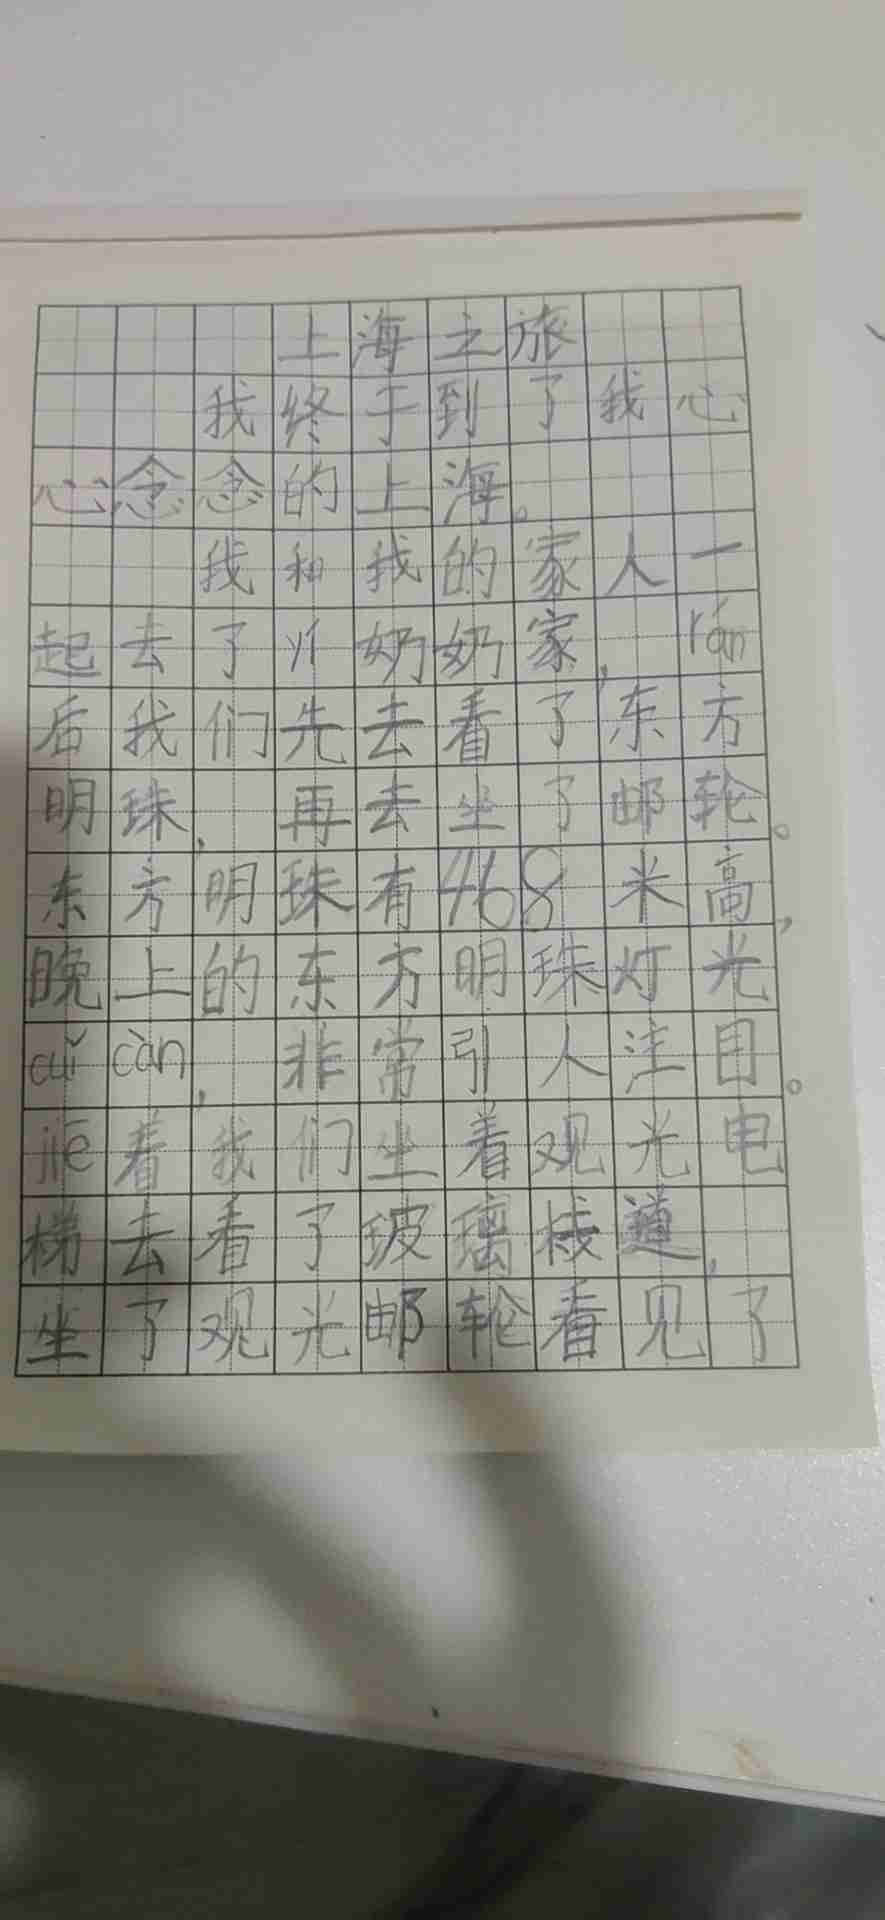 上海之旅
我终于到了我心
心念念的上海。
我和我的家人一
起去了奶奶家,rán
后我们先去看了东方
明珠,再去坐了邮轮。
东方明珠有468米高,
晚上的东方明珠灯光
cuǐ càn,非常引人注目。
jiē着我们坐着观光电
梯去看了玻璃栈道,
坐了观光邮轮看见了